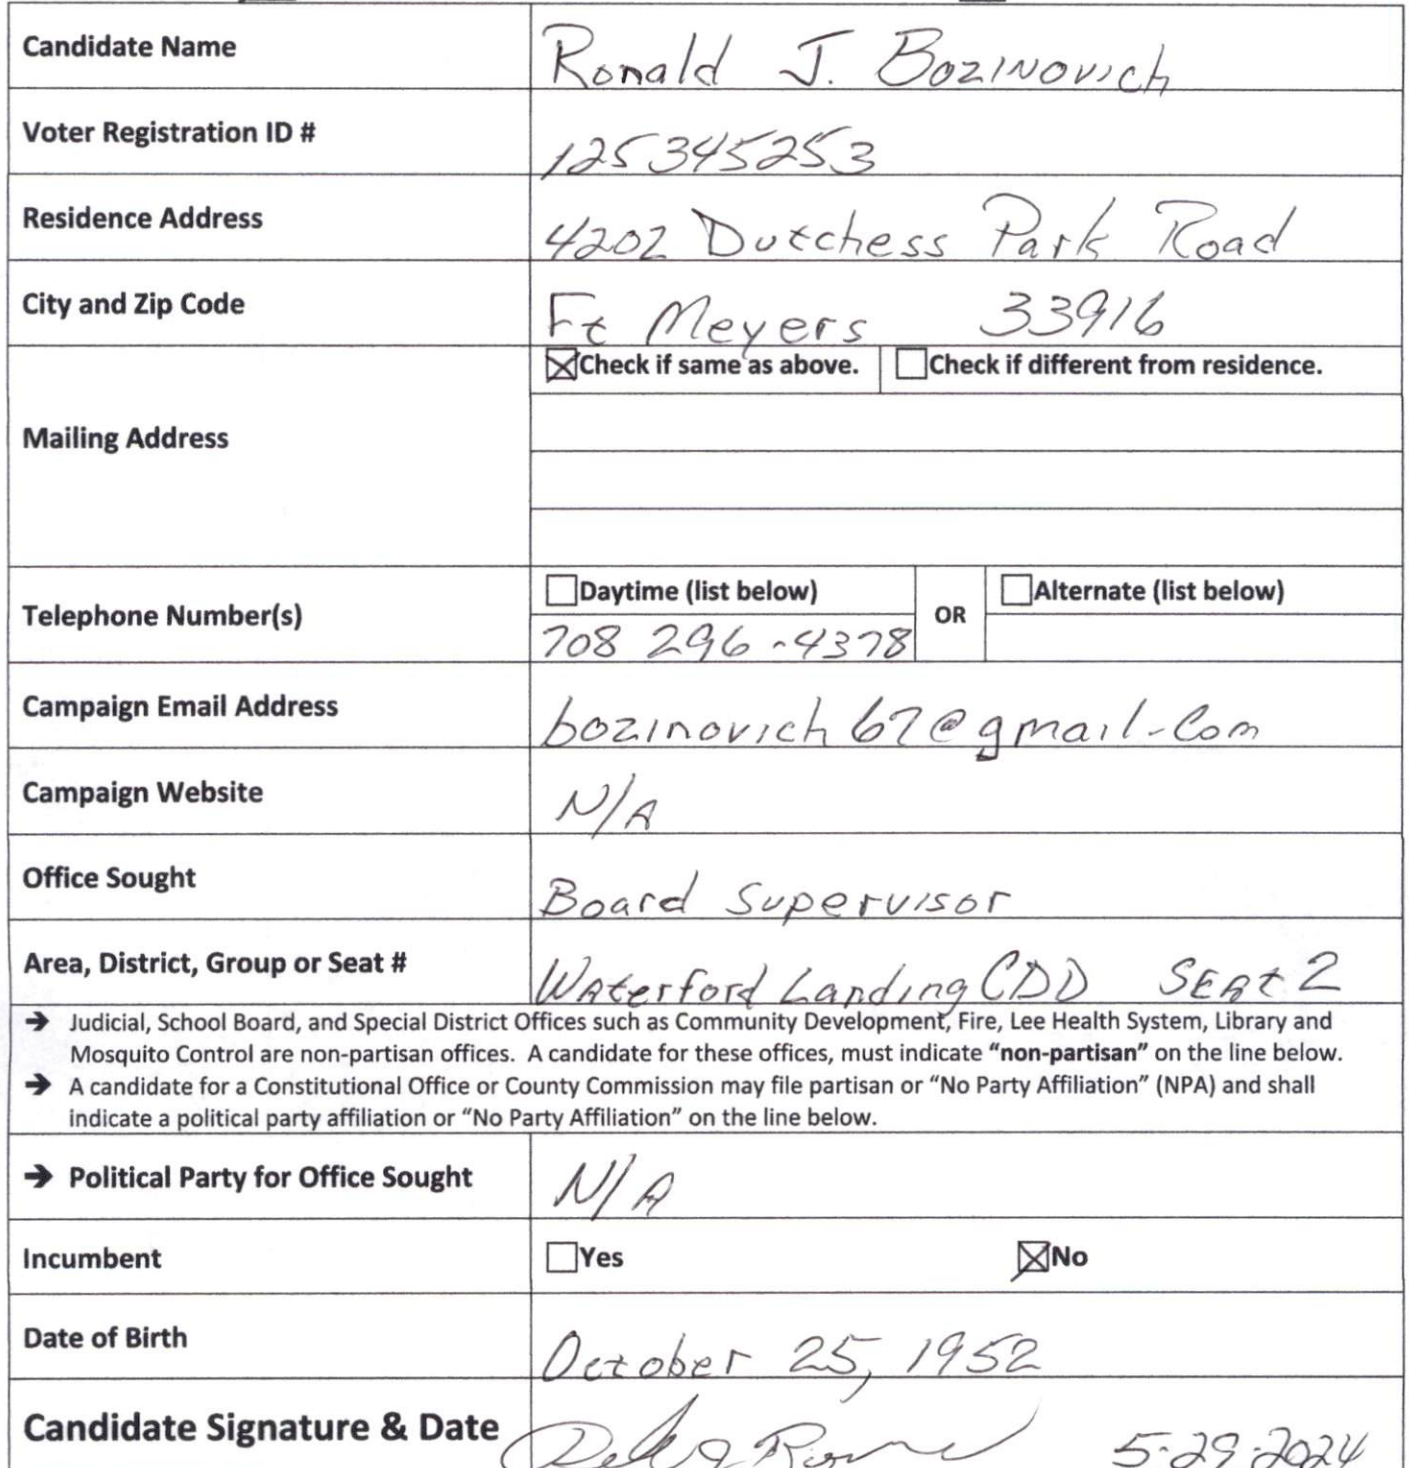 Candidate Name
Ronald J. Bozinovich
Voter Registration ID #
125345253
Residence Address
4202 Dutchess Park Road
City and Zip Code
Ft Meyers 33916
Check if same as above. Check if different from residence.
Mailing Address
Telephone Number(s)
Daytime (list below) OR Alternate (list below)
708 296-4378
Campaign Email Address
bozinovich67@gmail.com
Campaign Website
N/A
Office Sought
Board Supervisor
Area, District, Group or Seat #
Waterford Landing CDD Seat 2
→ Judicial, School Board, and Special District Offices such as Community Development, Fire, Lee Health System, Library and
Mosquito Control are non-partisan offices. A candidate for these offices, must indicate "non-partisan" on the line below.
→ A candidate for a Constitutional Office or County Commission may file partisan or "No Party Affiliation" (NPA) and shall
indicate a political party affiliation or "No Party Affiliation" on the line below.
→ Political Party for Office Sought
N/A
Incumbent
Yes No
Date of Birth
October 25, 1952
Candidate Signature & Date
5-29-2024